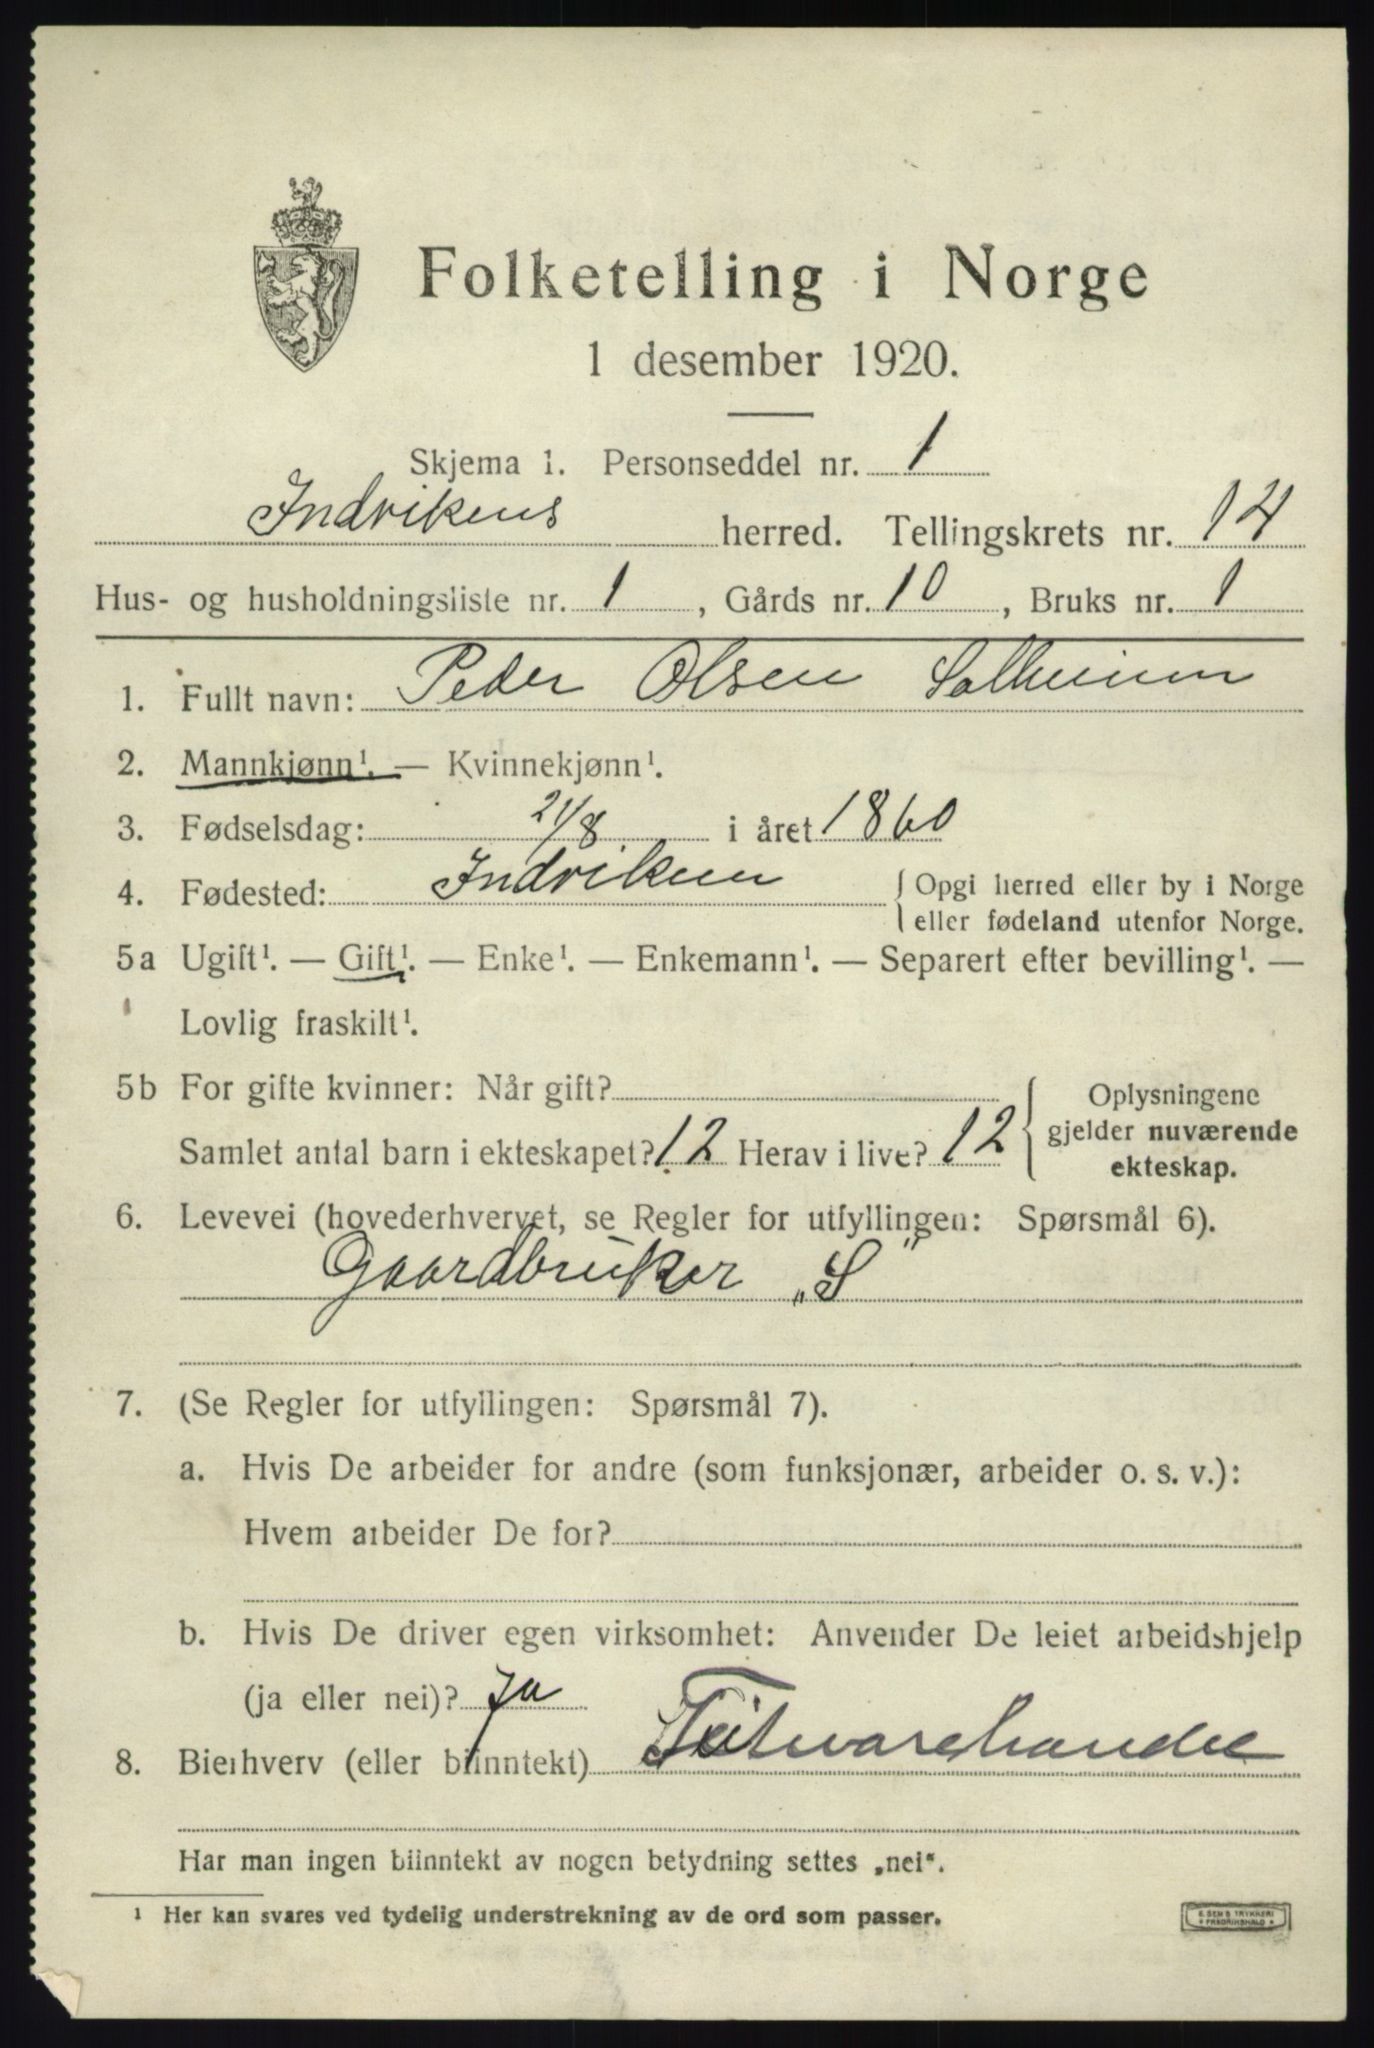 Folketelling i Norge
1 desember 1920.
Skjema 1. Personseddel nr. 1
Indvikens herred. Tellingskrets nr. 14
Hus- og husholdningsliste nr. 1, Gårds nr. 10, Bruks nr. 1
1. Fullt navn: Peder Olsen Solheim
2. Mannkjønn¹. — Kvinnekjønn¹.
3. Fødselsdag: 21/8 i året 1860
4. Fødested: Indviken { Opgi herred eller by i Norge
eller fødeland utenfor Norge.
5a Ugift¹. — Gift¹. — Enke¹. — Enkemann¹. — Separert efter bevilling¹. —
Lovlig fraskilt¹.
5b For gifte kvinner: Når gift?
Samlet antal barn i ekteskapet? 12 Herav i live? 12
{ Oplysningene
gjelder nuværende
ekteskap.
6. Levevei (hovederhvervet, se Regler for utfyllingen: Spørsmål 6).
Gaardbruker „S"
7. (Se Regler for utfyllingen: Spørsmål 7).
a. Hvis De arbeider for andre (som funksjonær, arbeider o. s. v.):
Hvem arbeider De for?
b. Hvis De driver egen virksomhet: Anvender De leiet arbeidshjelp
(ja eller nei)? Ja
8. Bierhverv (eller biinntekt)
Har man ingen biinntekt av nogen betydning settes „nei“.
¹ Her kan svares ved tydelig understrekning av de ord som passer.
E. SEM'S TRYKKERI
* FREDRIKSHALD *